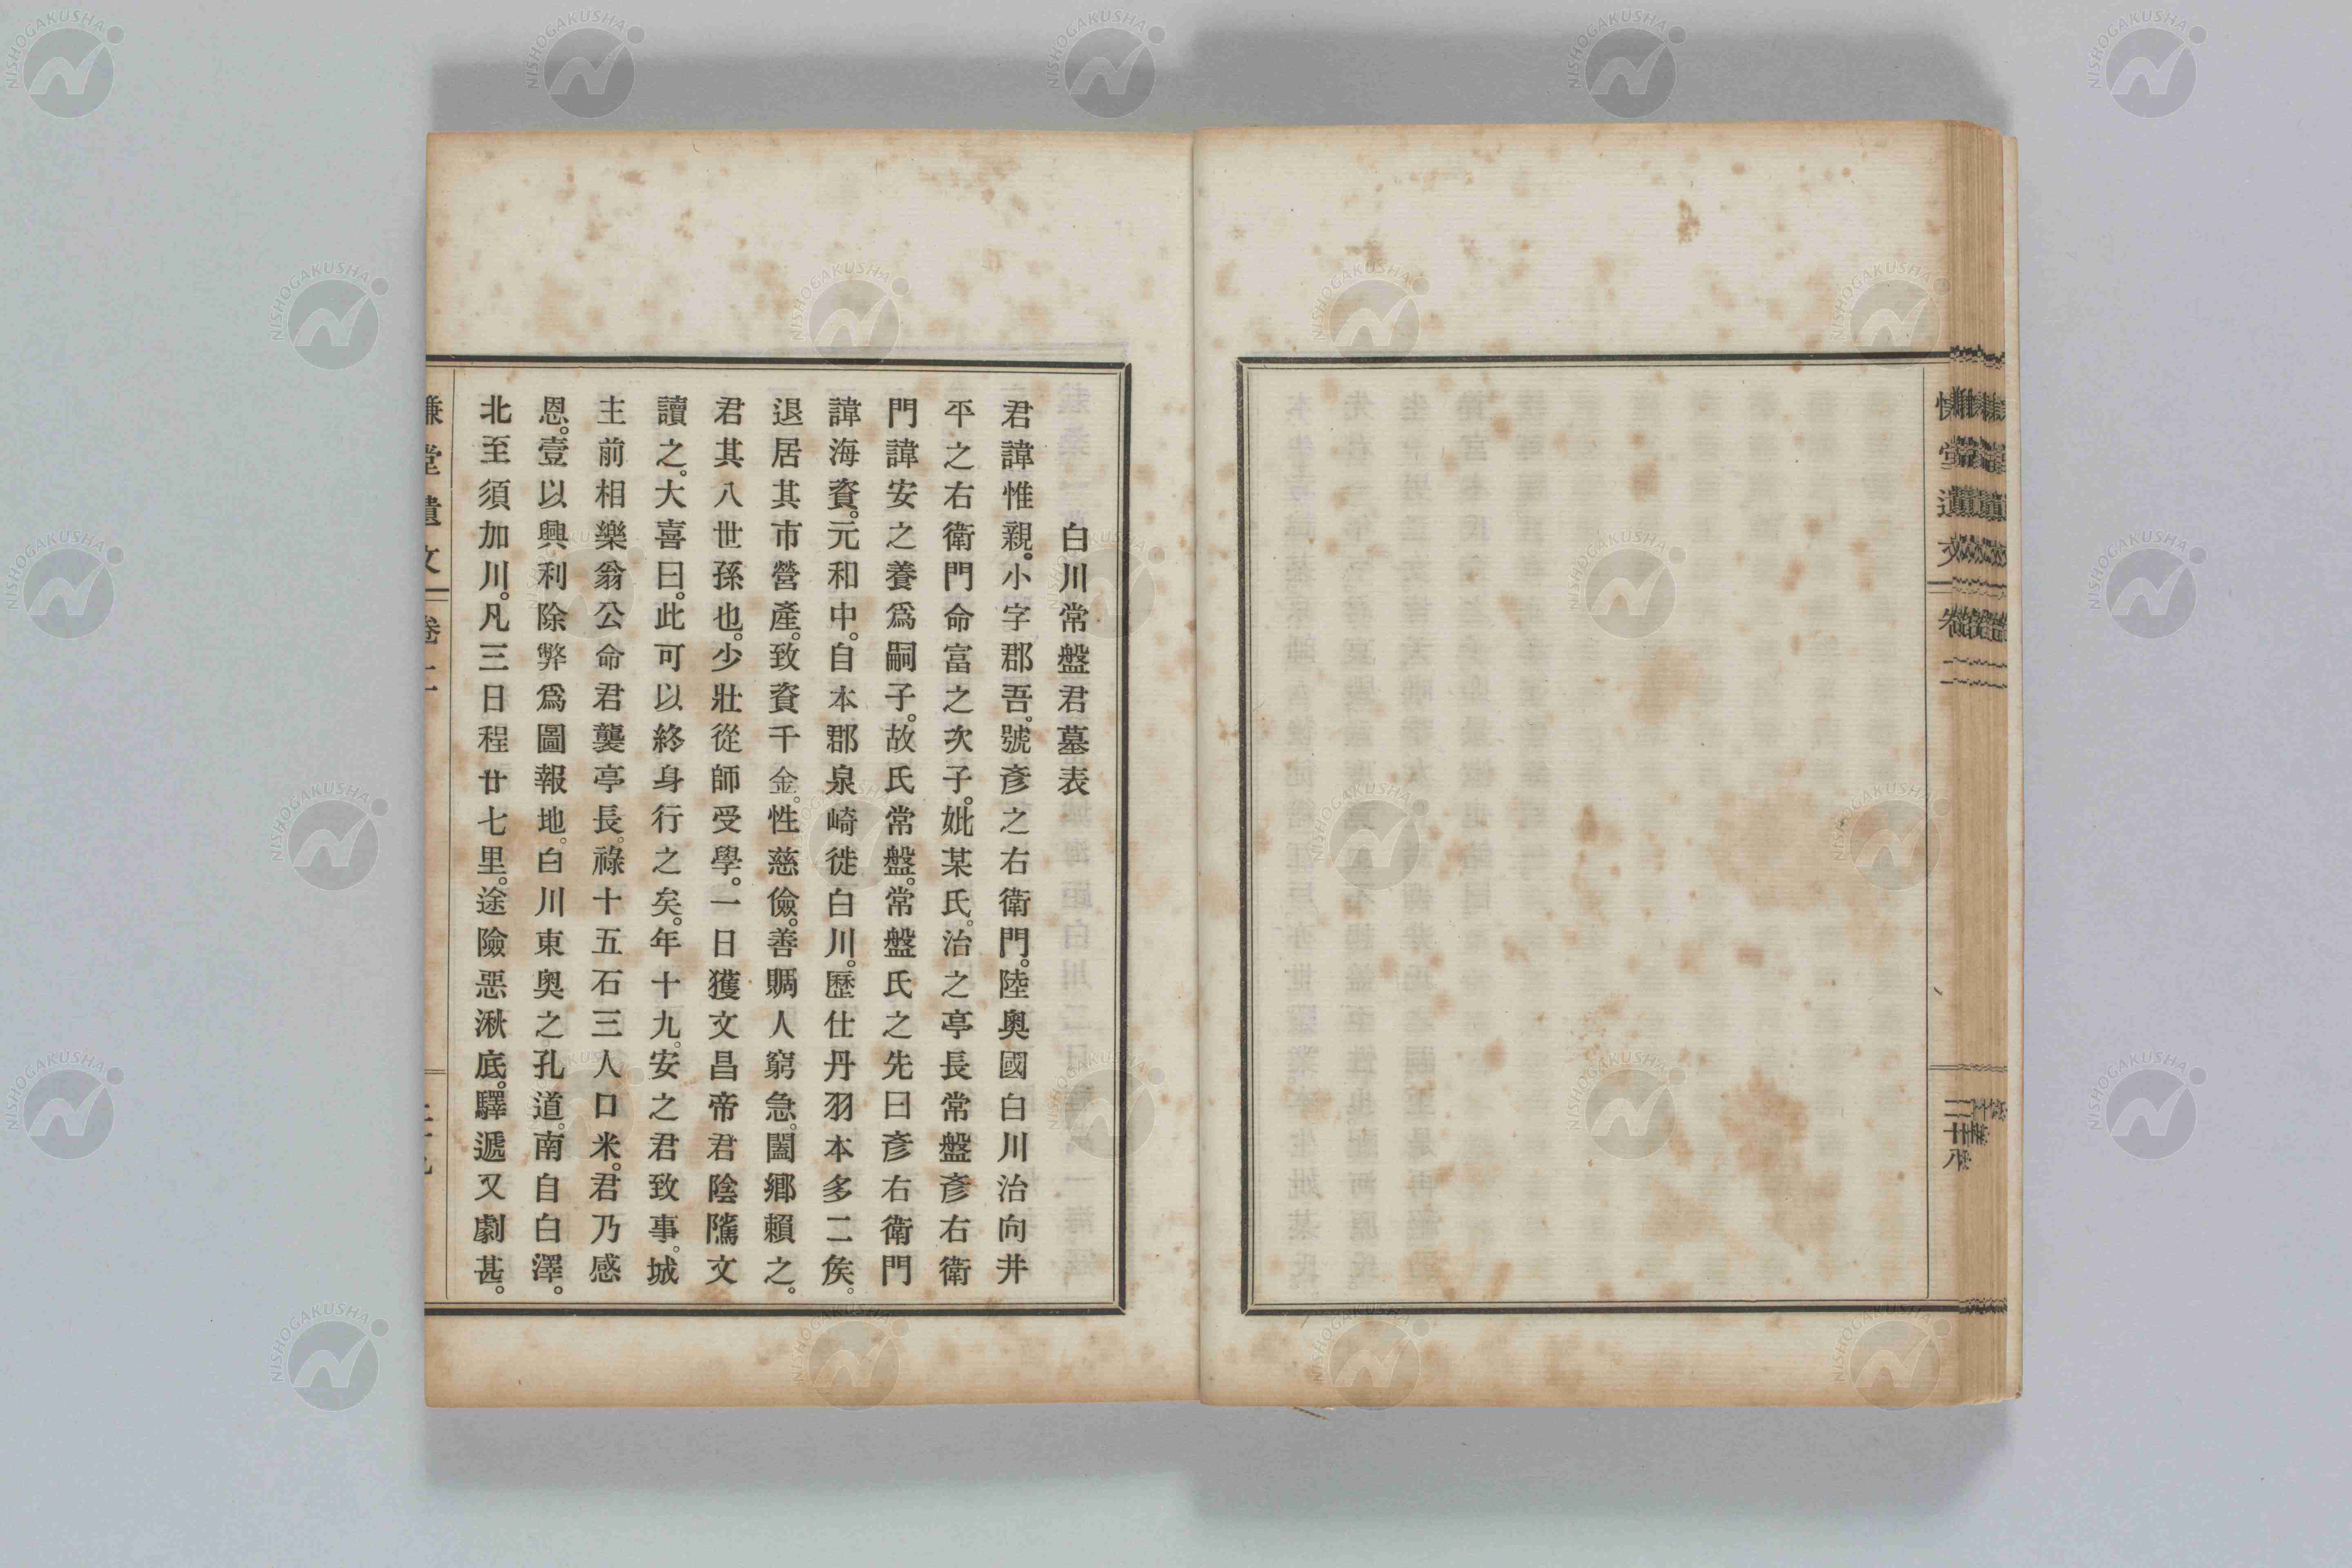 白川常盤君墓表
君諱惟親。小字郡吾。號彥之右衛門。陸奥國白川治向井
平之右衛門命富之次子。妣某氏。治之亭長常盤彥右衛
門諱安之養爲嗣子。故氏常盤。常盤氏之先曰彥右衛門
諱海資。元和中。自本郡泉崎徙白川。歷仕丹羽本多二矦。
退居其市營產。致資千金。性慈儉。善賙人窮急。闔鄉賴之。
君其八世孫也。少壯從師受學。一日獲文昌帝君陰隲文
讀之。大喜曰。此可以終身行之矣。年十九。安之君致事。城
主前相樂翁公命君襲亭長。祿十五石三人口米。君乃感
恩。壹以興利除弊爲圖報地。白川東奥之孔道。南自白澤。
北至須加川。凡三日程廿七里。途險惡湫底。驛遞又劇甚。
堂遺文 卷二
NISHOGAKUSHA